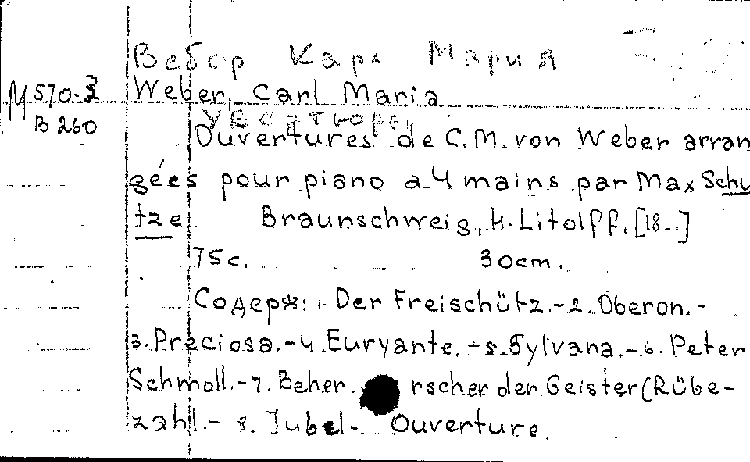 Вебер Карл Мария
М 570-3 Weber, Carl Maria
В 260 Увертюры
Ouvertures de C.M. von Weber arran
gées pour piano a 4 mains par Max Schu
tze Braunschweig, H. Litolff. [18..]
75c. 30cm.
Содерж: 1. Der Freischütz.-2. Oberon.-
3. Preciosa.-4. Euryante.-5. Sylvana.-6. Peter
Schmoll.-7. Beher rscher der Geister (Rübe-
zahl.- 8. Jubel- Ouverture.